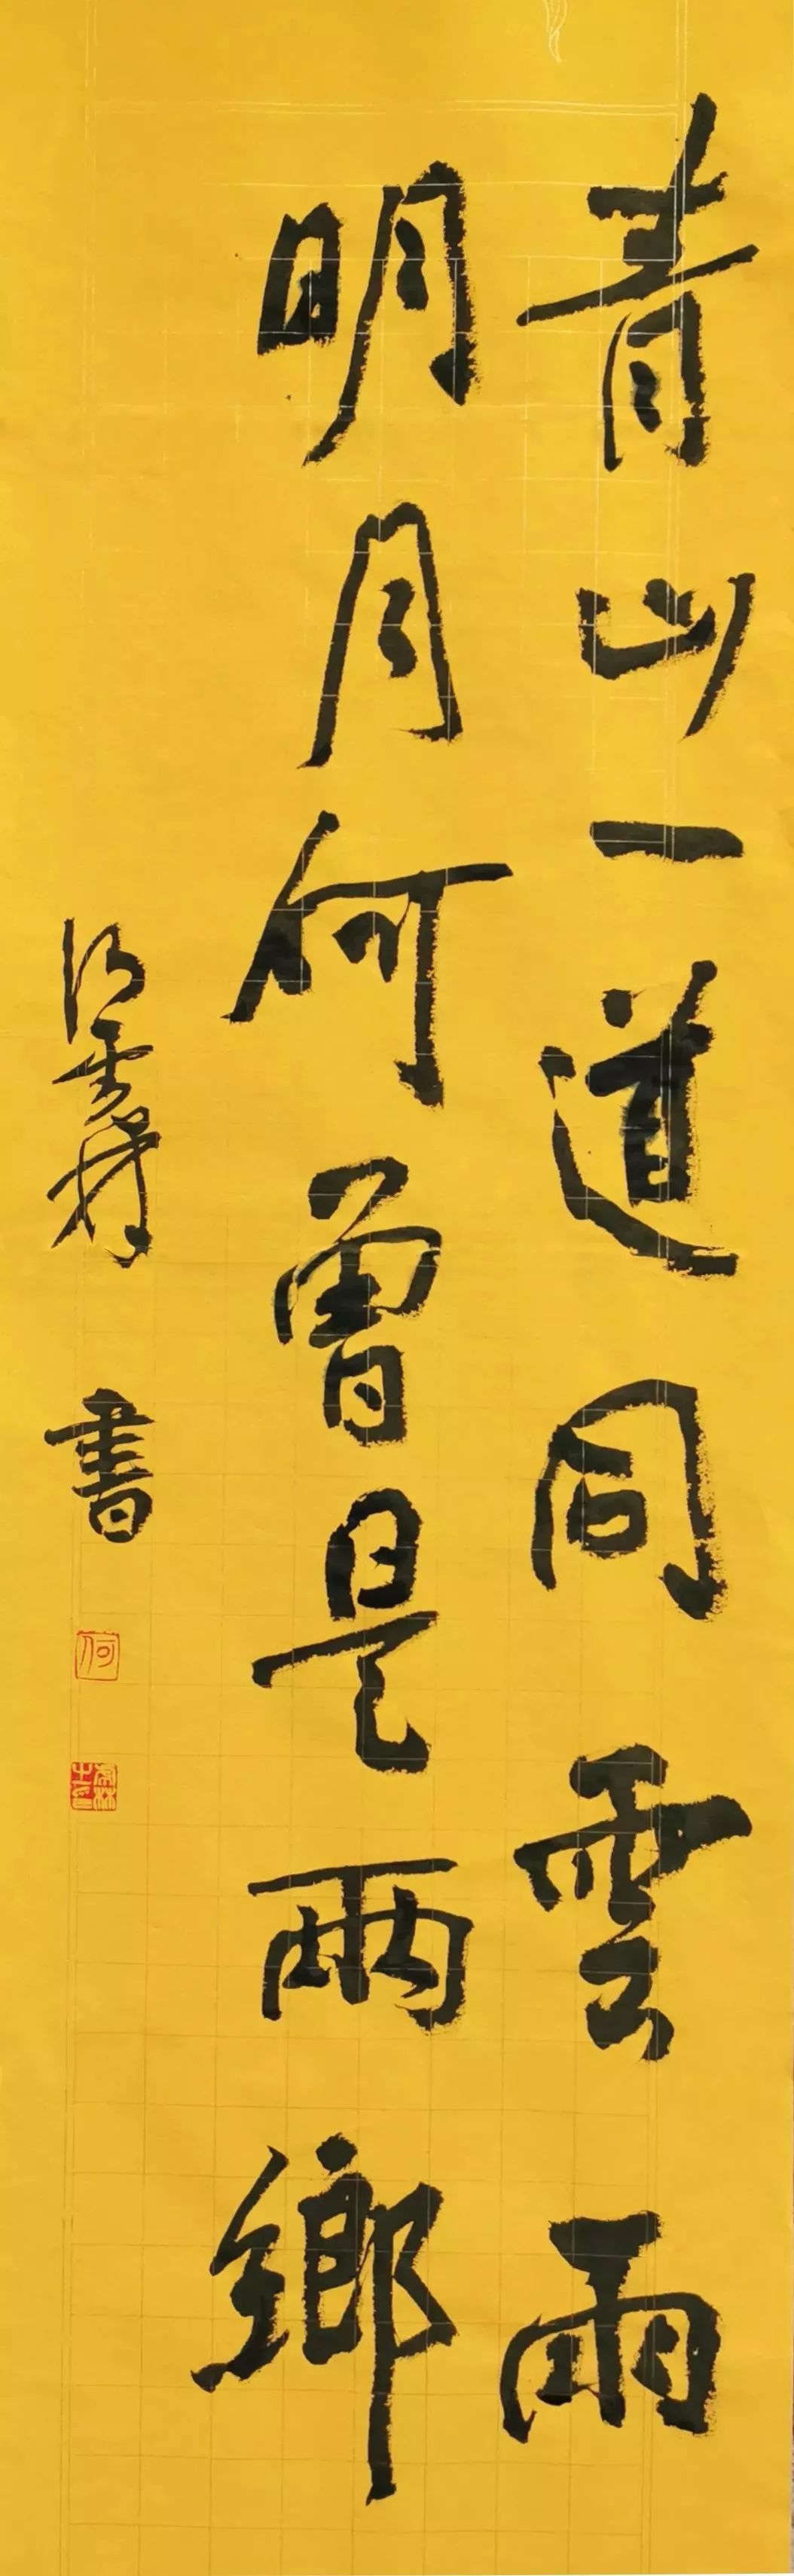 青山一道同雲雨
明月何曾是兩鄉
書
何